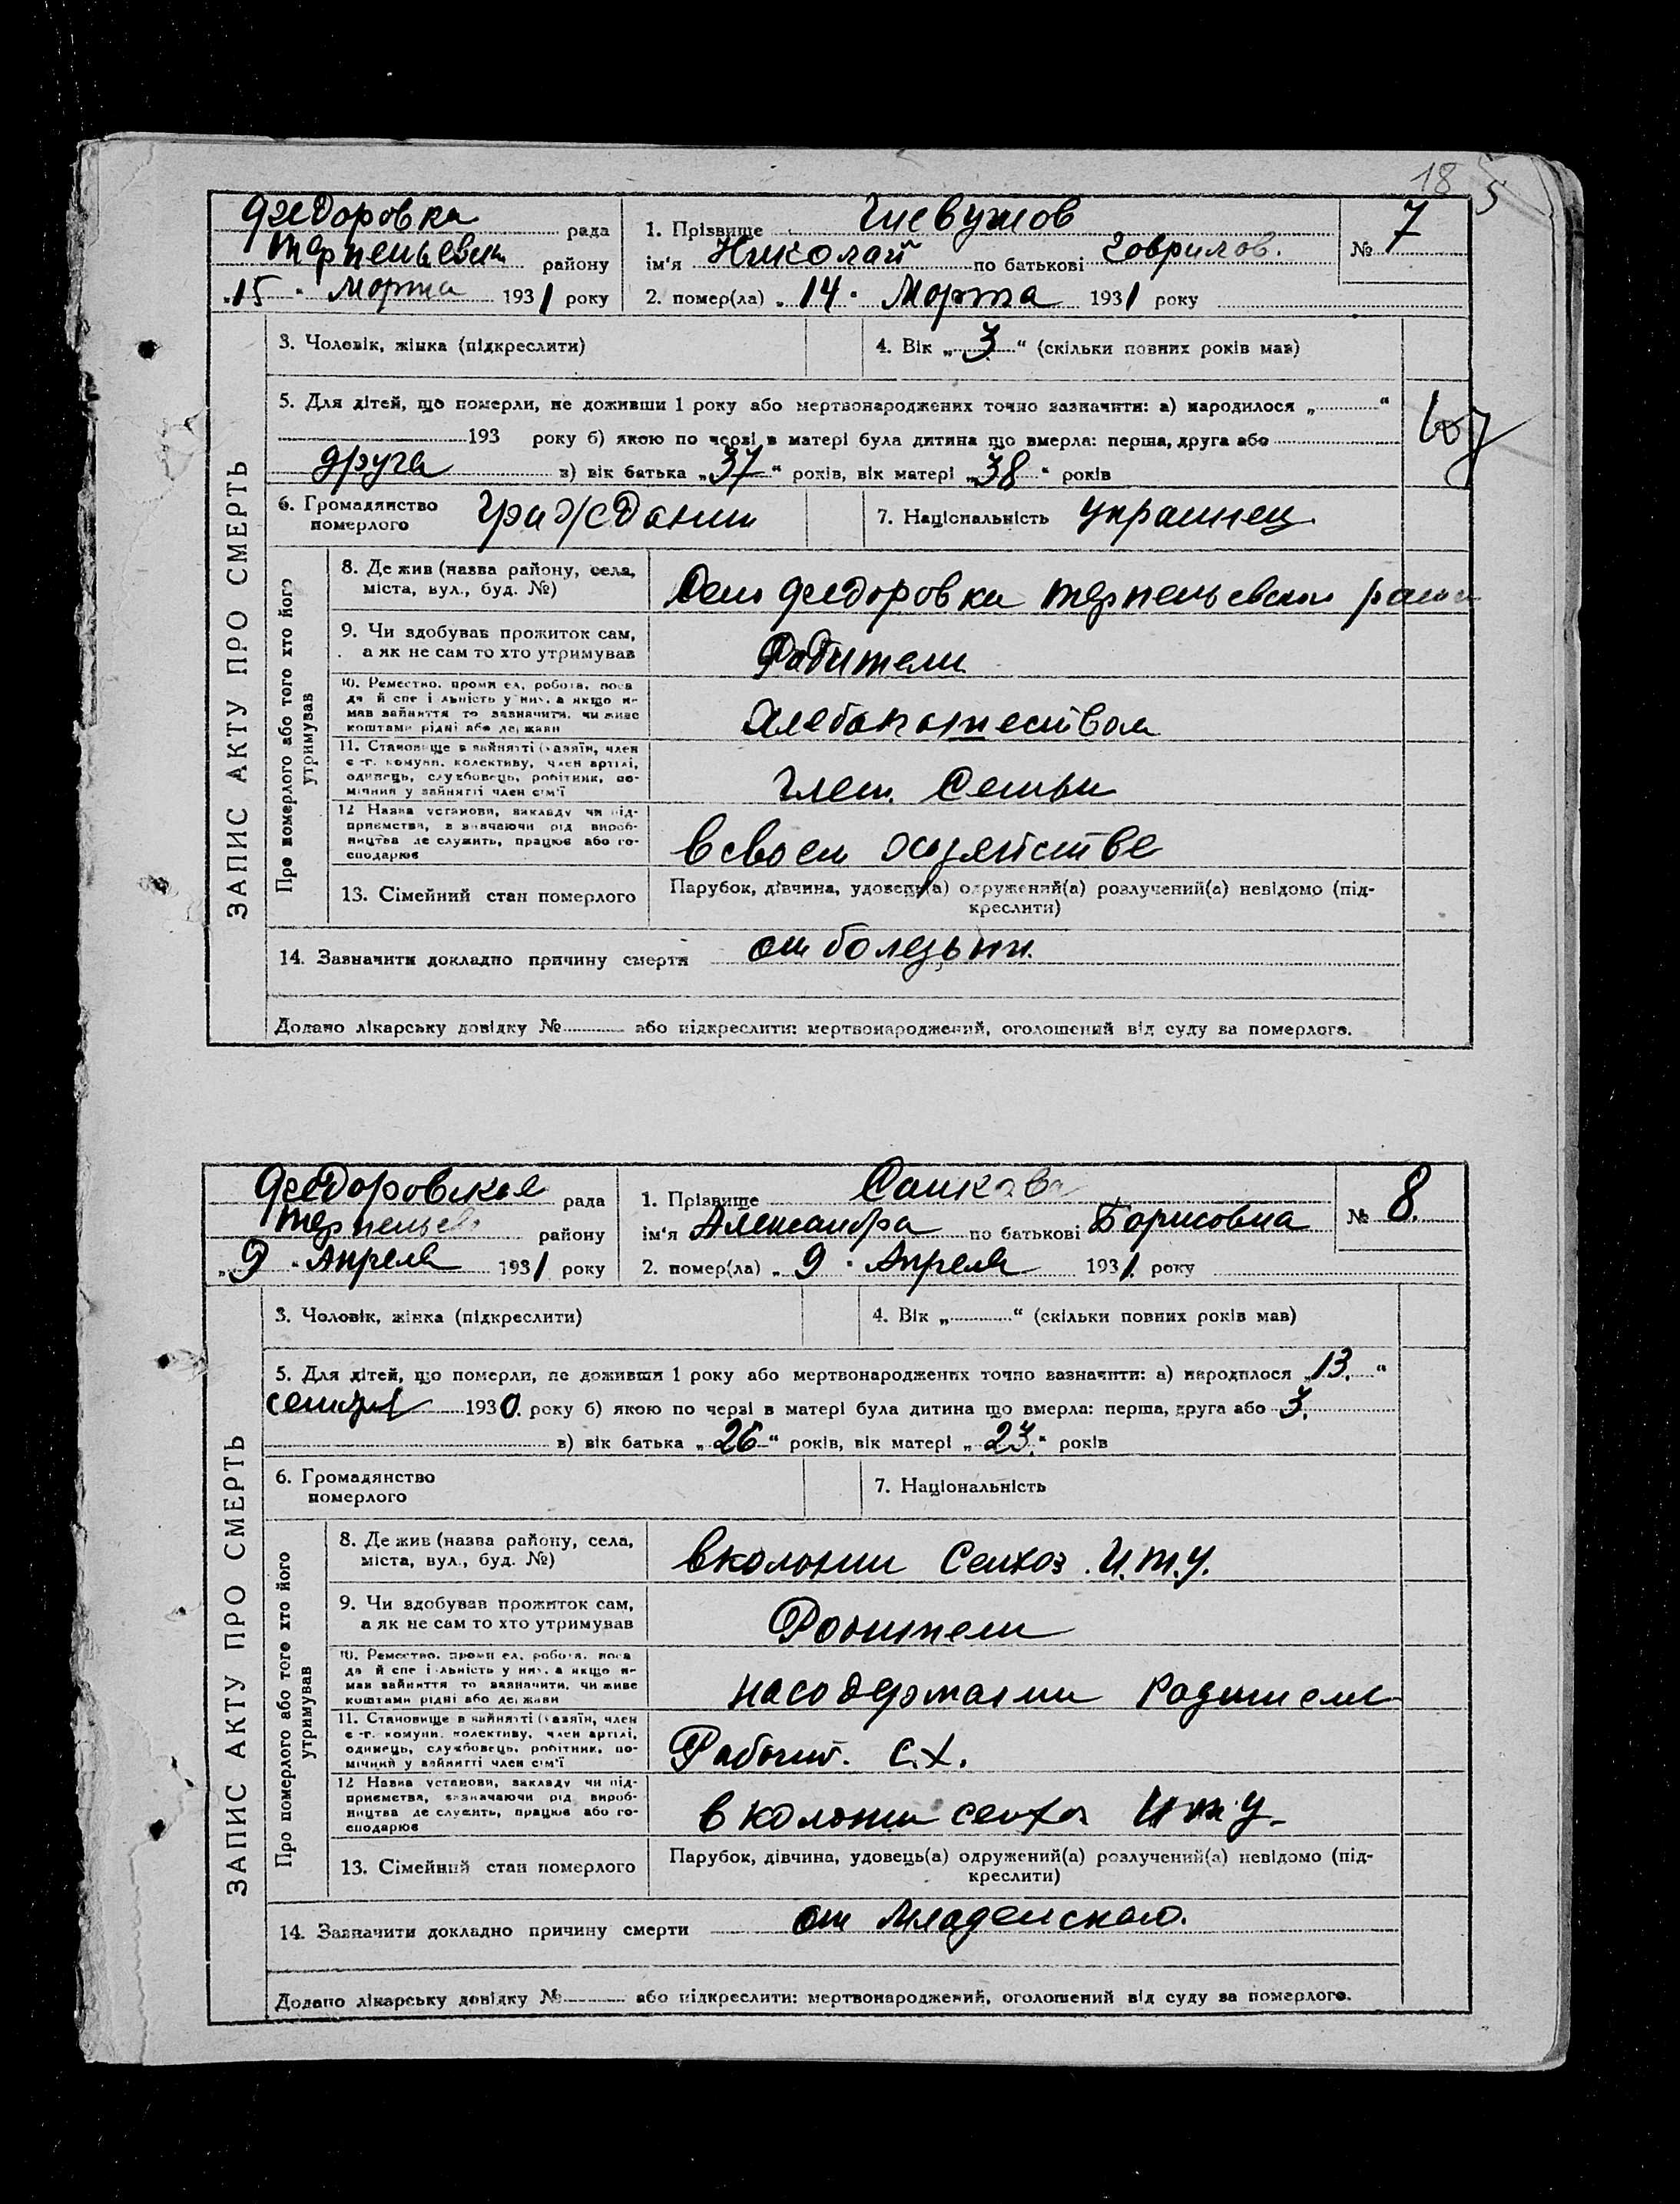 18 5
Федоровка рада
Терпеньевск району
„15“ Морта 1931 року
1. Прізвище
ім'я Николай по батькові Говрилов.
2. помер(ла) „14“ Морта 1931 року
№ 7
ЗАПИС АКТУ ПРО СМЕРТЬ
3. Чоловік, жінка (підкреслити)
4. Вік „3“ (скільки повних років мав)
5. Для дітей, що померли, не доживши 1 року або мертвонароджених точно зазначити: а) народилося „ “
193 року б) якою по черзі в матері була дитина що вмерла: перша, друга або
друга в) вік батька „37“ років, вік матері „38“ років
6. Громадянство
померлого Гражданин
7. Національність украинец.
Про померлого або того хто його
утримував
8. Де жив (назва району, села,
міста, вул., буд. №) Село федоровка терпеньевского
9. Чи здобував прожиток сам,
а як не сам то хто утримував Родители
10. Ремество, промисел, робота, поса
да й спеціяльність у них, а якщо не
мав зайняття то зазначити, чи живе
коштами рідні або держави Хлебопошеством
11. Становище в зайнятті (хазяїн, член
с.-г. комуни, колективу, член артілі,
одинець, службовець, робітник, по-
мічний у зайнятті член сім'ї Член. Семьи
12 Назва установи, закладу чи під-
приємства, зазначаючи рід вироб-
ництва де служить, працює або го-
сподарює в своем хозяйстве
13. Сімейний стан померлого
Парубок, дівчина, удовець(а) одружений(а) розлучений(а) невідомо (під-
креслити)
14. Зазначити докладно причину смерти от болезьни.
Додано лікарську довідку № або підкреслити: мертвонароджений, оголошений від суду за померлого.
Федоровская рада
Терпеньев району
„9“ Апреля 1931 року
1. Прізвище
ім'я Александра по батькові Борисовна
2. помер(ла) „9“ Апреля 1931. року
№ 8.
ЗАПИС АКТУ ПРО СМЕРТЬ
3. Чоловік, жінка (підкреслити)
4. Вік „ “ (скільки повних років мав)
5. Для дітей, що померли, не доживши 1 року або мертвонароджених точно зазначити: а) народилося „13.“
1930. року б) якою по черзі в матері була дитина що вмерла: перша, друга або 3.
в) вік батька „26“ років, вік матері „23.“ років
6. Громадянство
померлого
7. Національність
Про померлого або того хто його
утримував
8. Де жив (назва району, села,
міста, вул., буд. №) в колонии Селхоз. И.т.у.
9. Чи здобував прожиток сам,
а як не сам то хто утримував Родители
10. Ремество, промисел, робота, поса
да й спеціяльність у них, а якщо не
мав зайняття то зазначити, чи живе
коштами рідні або держави на содержании Родителе
11. Становище в зайнятті (хазяїн, член
с.-г. комуни, колективу, член артілі,
одинець, службовець, робітник, по-
мічний у зайнятті член сім'ї Рабочий. С.Х.
12 Назва установи, закладу чи під-
приємства, зазначаючи рід вироб-
ництва де служить, працює або го-
сподарює в колонии селхоз И т у.
13. Сімейний стан померлого
Парубок, дівчина, удовець(а) одружений(а) розлучений(а) невідомо (під-
креслити)
14. Зазначити докладно причину смерти от Младенского.
Додано лікарську довідку № або підкреслити: мертвонароджений, оголошений від суду за померлого.